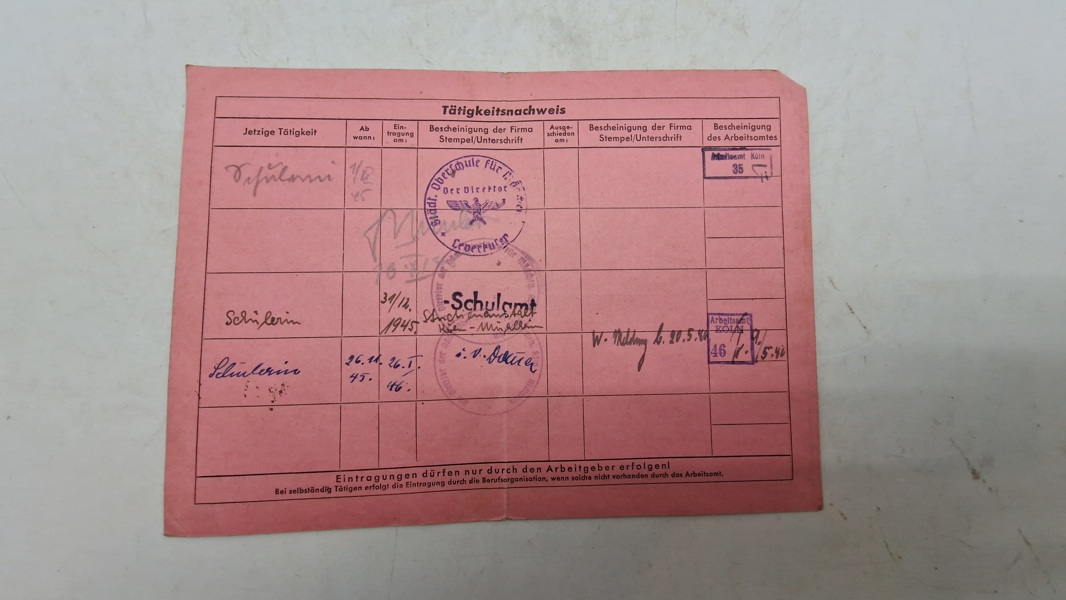 Tätigkeitsnachweis
Jetzige Tätigkeit
Ab wann:
Ein-
tragung
am:
Bescheinigung der Firma
Stempel/Unterschrift
Ausge-
schieden
am:
Bescheinigung der Firma
Stempel/Unterschrift
Bescheinigung
des Arbeitsamtes
Schülerin
45
Städt. Oberschule für
Der Director
Leverkusen
Arbeitsamt Köln
35
Schülerin
31/12.
1945
-Schulamt
Köln-Mülheim
W. Meldung b. 20.5.46
Arbeitsamt
KÖLN
46
5.46
Schülerin
45.
26.I.
46.
i. V.
Eintragungen dürfen nur durch den Arbeitgeber erfolgen!
Bei selbständig Tätigen erfolgt die Eintragung durch die Berufsorganisation, wenn solche nicht vorhanden durch das Arbeitsamt.